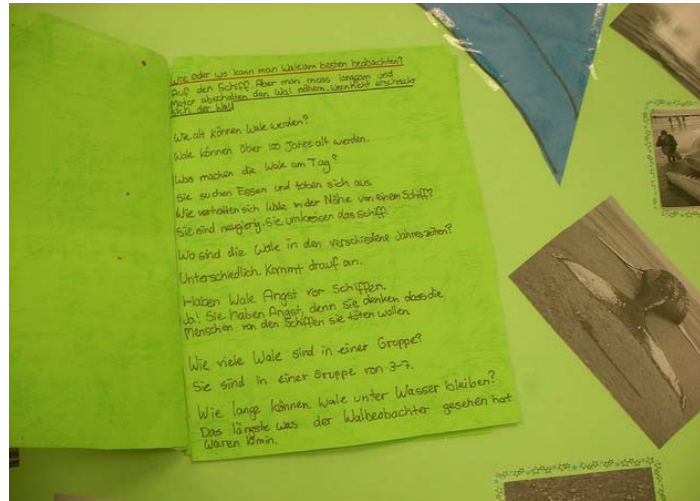 Wie oder wo kann man Wale am besten beobachten?
Auf den Schiff. Aber man muss langsam und
Motor abschalten den Wal nähern. Wenn nicht erschreckt
sich der Wal!
Wie alt können Wale werden?
Wale können über 100 Jahre alt werden.
Was machen die Wale am Tag?
Sie suchen Essen und toben sich aus.
Wie verhalten sich Wale in der Nähe von einem Schiff?
Sie sind neugierig. Sie umkreisen das Schiff.
Wo sind die Wale in den verschiedene Jahreszeiten?
Unterschiedlich. Kommt drauf an.
Haben Wale Angst vor Schiffen.
Ja! Sie haben Angst, denn sie denken dass die
Menschen von den Schiffen sie töten wollen.
Wie viele Wale sind in einer Gruppe?
Sie sind in einer Gruppe von 3-7.
Wie lange können Wale unter Wasser bleiben?
Das längste was der Walbeobachter gesehen hat
waren min.